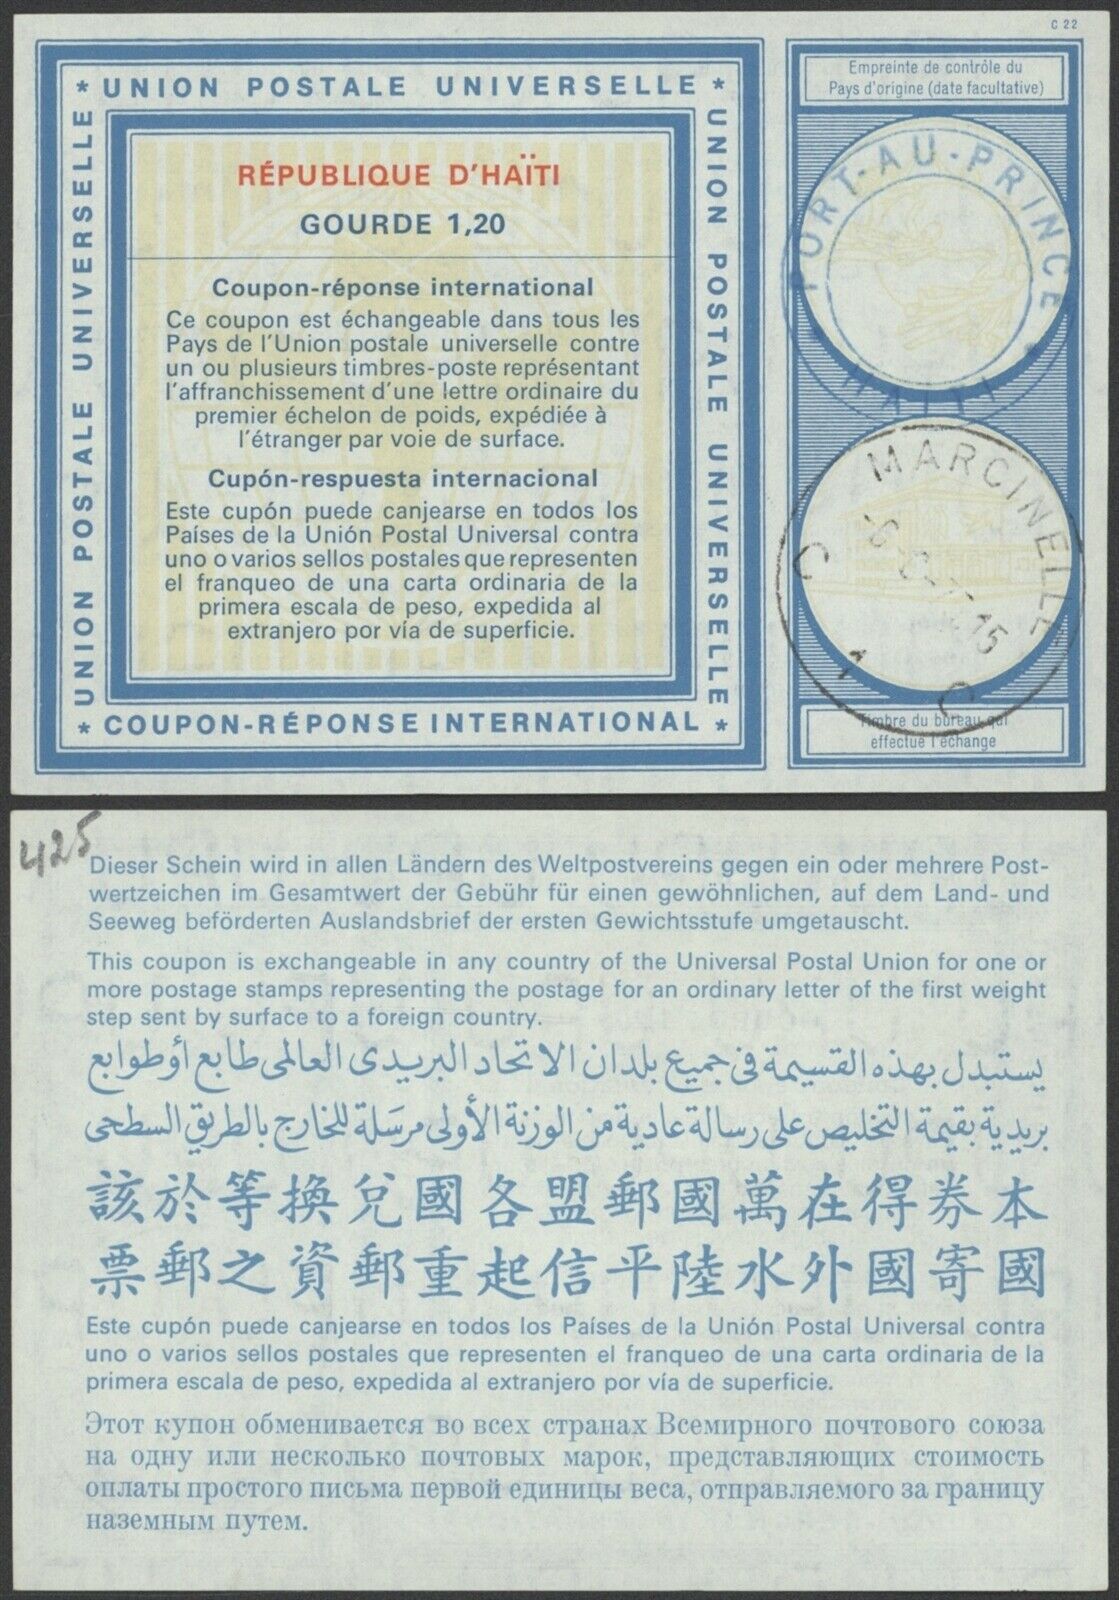 C 22
* UNION POSTALE UNIVERSELLE *
UNION POSTALE UNIVERSELLE
UNION POSTALE UNIVERSELLE
RÉPUBLIQUE D'HAÏTI
GOURDE 1,20
Coupon-réponse international
Ce coupon est échangeable dans tous les
Pays de l'Union postale universelle contre
un ou plusieurs timbres-poste représentant
l'affranchissement d'une lettre ordinaire du
premier échelon de poids, expédiée à
l'étranger par voie de surface.
Cupón-respuesta internacional
Este cupón puede canjearse en todos los
Países de la Unión Postal Universal contra
uno o varios sellos postales que representen
el franqueo de una carta ordinaria de la
primera escala de peso, expedida al
extranjero por vía de superficie.
* COUPON-RÉPONSE INTERNATIONAL *
Empreinte de contrôle du
Pays d'origine (date facultative)
PORT-AU-PRINCE
HAITI
MARCINELLE
C 1 C
15
Timbre du bureau qui
effectue l'échange
425
Dieser Schein wird in allen Ländern des Weltpostvereins gegen ein oder mehrere Post-
wertzeichen im Gesamtwert der Gebühr für einen gewöhnlichen, auf dem Land- und
Seeweg beförderten Auslandsbrief der ersten Gewichtsstufe umgetauscht.
This coupon is exchangeable in any country of the Universal Postal Union for one or
more postage stamps representing the postage for an ordinary letter of the first weight
step sent by surface to a foreign country.
يستبدل بهذه القسيمة فى جميع بلدان الاتحاد البريدى العالمى طابع أو طوابع
بريدية بقيمة التخليص على رسالة عادية من الوزنة الأولى مرسَلة للخارج بالطريق السطحى
本券得在萬國郵盟各國兌換等於該
國寄國外水陸平信起重郵資之郵票
Este cupón puede canjearse en todos los Países de la Unión Postal Universal contra
uno o varios sellos postales que representen el franqueo de una carta ordinaria de la
primera escala de peso, expedida al extranjero por vía de superficie.
Этот купон обменивается во всех странах Всемирного почтового союза
на одну или несколько почтовых марок, представляющих стоимость
оплаты простого письма первой единицы веса, отправляемого за границу
наземным путем.